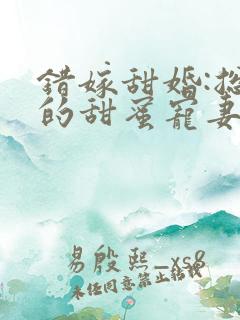 错嫁甜婚:总
的甜蜜宠妻
易殷熙_xs8
未经同意禁止转载